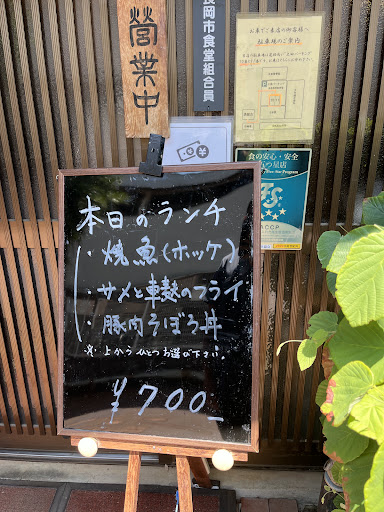 営業中
長岡市食堂組合員
お車でご来店のお客様へ
駐車場のご案内
食の安心・安全
五つ星店
本日のランチ
・焼魚(ホッケ)
・サメと車麩のフライ
・豚肉そぼろ丼
※上からひとつお選び下さい。
¥700-